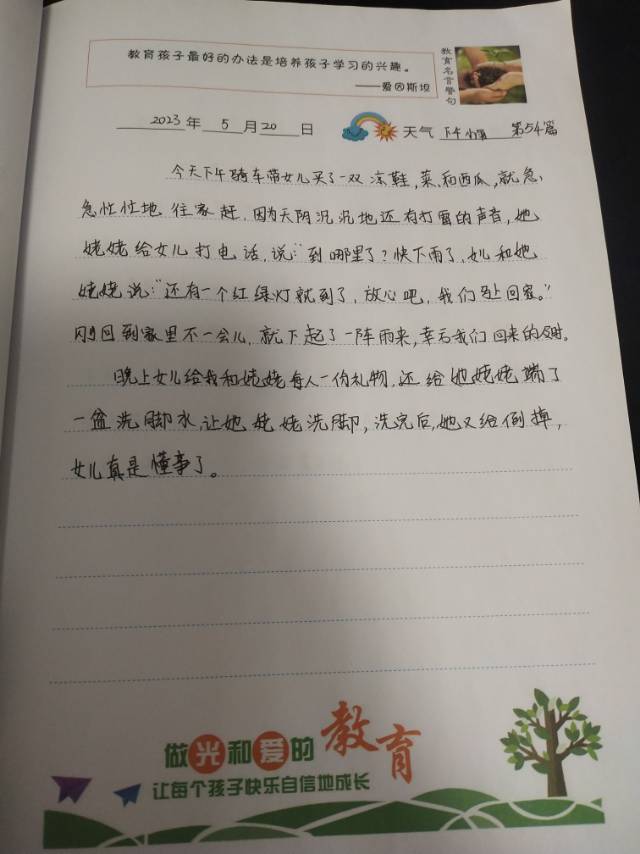 教育孩子最好的办法是培养孩子学习的兴趣。
——爱因斯坦
教育名言警句
2023年 5 月 20 日
天气 下午小雨 第54篇
今天下午骑车带女儿买了一双凉鞋,菜和西瓜,就急
急忙忙地往家赶,因为天阴沉沉地还有打雷的声音,她
姥姥给女儿打电话,说:“到哪里了?快下雨了,女儿和她
姥姥说:“还有一个红绿灯就到了,放心吧,我们马上回家。”
刚回到家里不一会儿,就下起了一阵雨来,幸亏我们回来的及时。
晚上女儿给我和姥姥每人一份礼物,还给她姥姥端了
一盆洗脚水,让她姥姥洗脚,洗完后,她又给倒掉,
女儿真是懂事了。
做光和爱的教育
让每个孩子快乐自信地成长